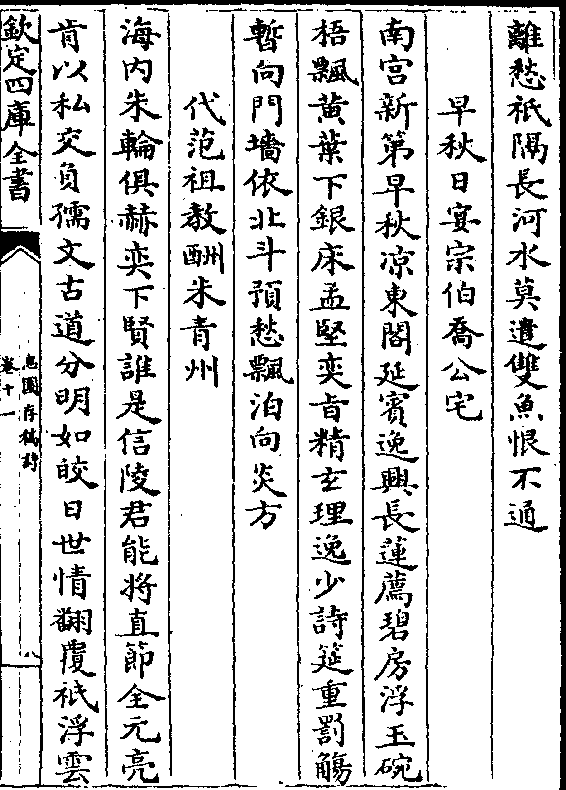 離愁祇隔長河水莫遣雙魚恨不通
早秋日宴宗伯喬公宅
南宫新第早秋凉東閣延賓逸興長蓮薦碧房浮玉碗
梧飄黄葉下銀床孟堅奕旨精玄理逸少詩筵重罰觴
暫向門墻依北斗預愁飄泊向炎方
代范祖教酬朱青州
海内朱輪俱赫奕下賢誰是信陵君能將直節全元亮
肯以私交負孺文古道分明如皎日世情翻覆祇浮雲
欽定四庫全書
息園存稿詩
卷十一
八